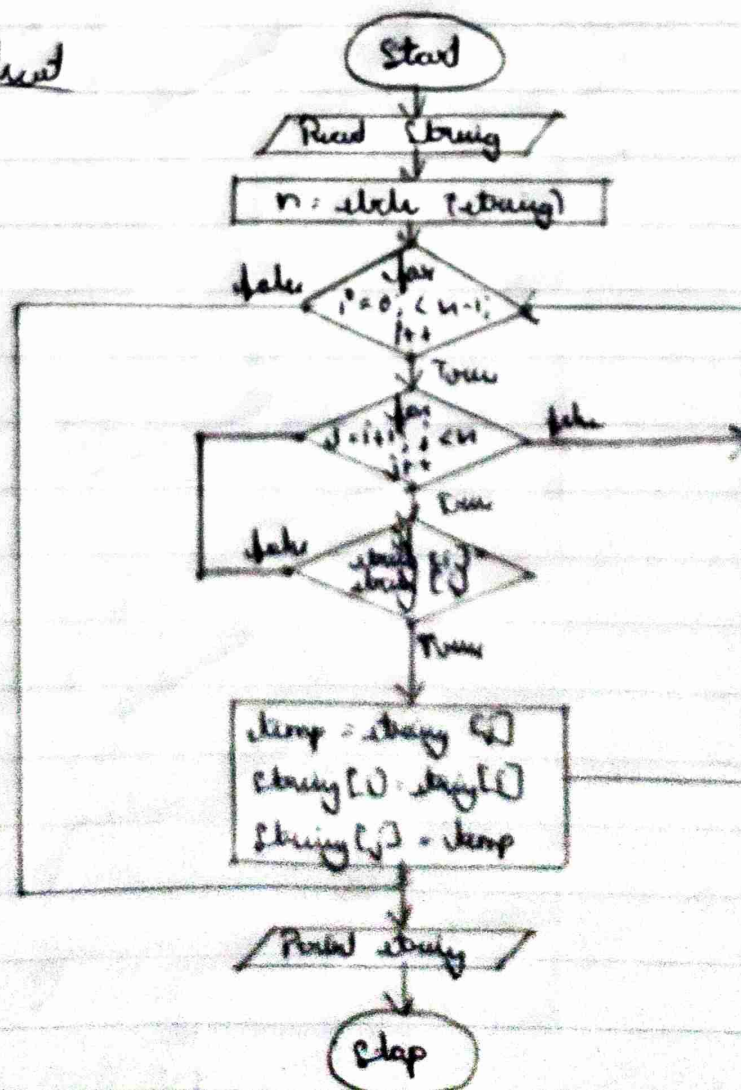 Start
Read String
n = strlen (string)
false
for
i = 0; < n-1;
i++
True
for
j = i+1; j < n
j++
false
True
string [i]
string [j]
false
True
temp = string
String [i] =
String [j] = temp
Print string
Stop